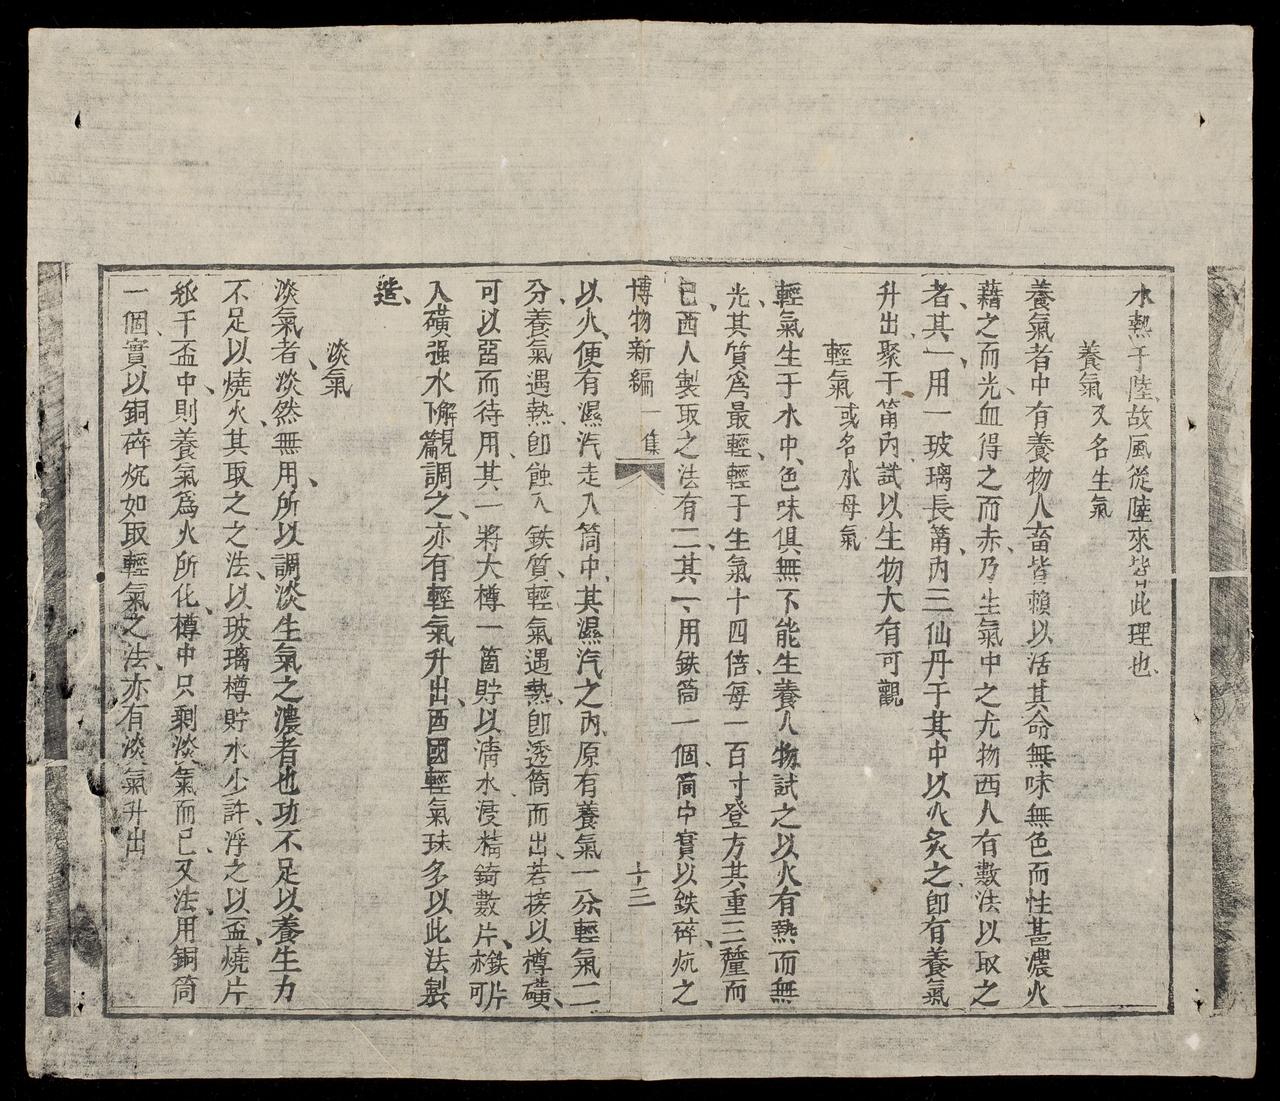 水熱于陸、故風從陸來、皆此理也、
養氣 又名生氣
養氣者中有養物人畜皆賴以活其命無味無色而性甚濃火
藉之而光血得之而赤乃生氣中之尤物西人有數法以取之
者其一、用一玻璃長筩內三仙丹于其中以火炙之即有養氣
升出聚于筩內試以生物大有可觀
輕氣 或名水母氣
輕氣生于水中色味俱無不能生養人物試之以火有熱而無
光其質爲最輕輕于生氣十四倍每一百寸登方其重三釐而
已西人製取之法有二其一、用鉄筒一個筒中實以鉄碎炕之
博物新編 一集 十三
以火便有濕汽走入筒中其濕汽之內原有養氣一分輕氣二
分養氣遇熱即蝕入鉄質輕氣遇熱即透筒而出若接以樽磺
可以畱而待用其一將大樽一箇貯以清水浸精錡數片、鉄片亦可
入磺强水解見下篇調之亦有輕氣升出西國輕氣球多以此法製
造、
淡氣
淡氣者淡然無用所以調淡生氣之濃者也功不足以養生力
不足以燒火其取之之法以玻璃樽貯水少許浮之以盃燒片
紙于盃中則養氣爲火所化樽中只剩淡氣而已又法用銅筒
一個實以銅碎炕如取輕氣之法亦有淡氣升出